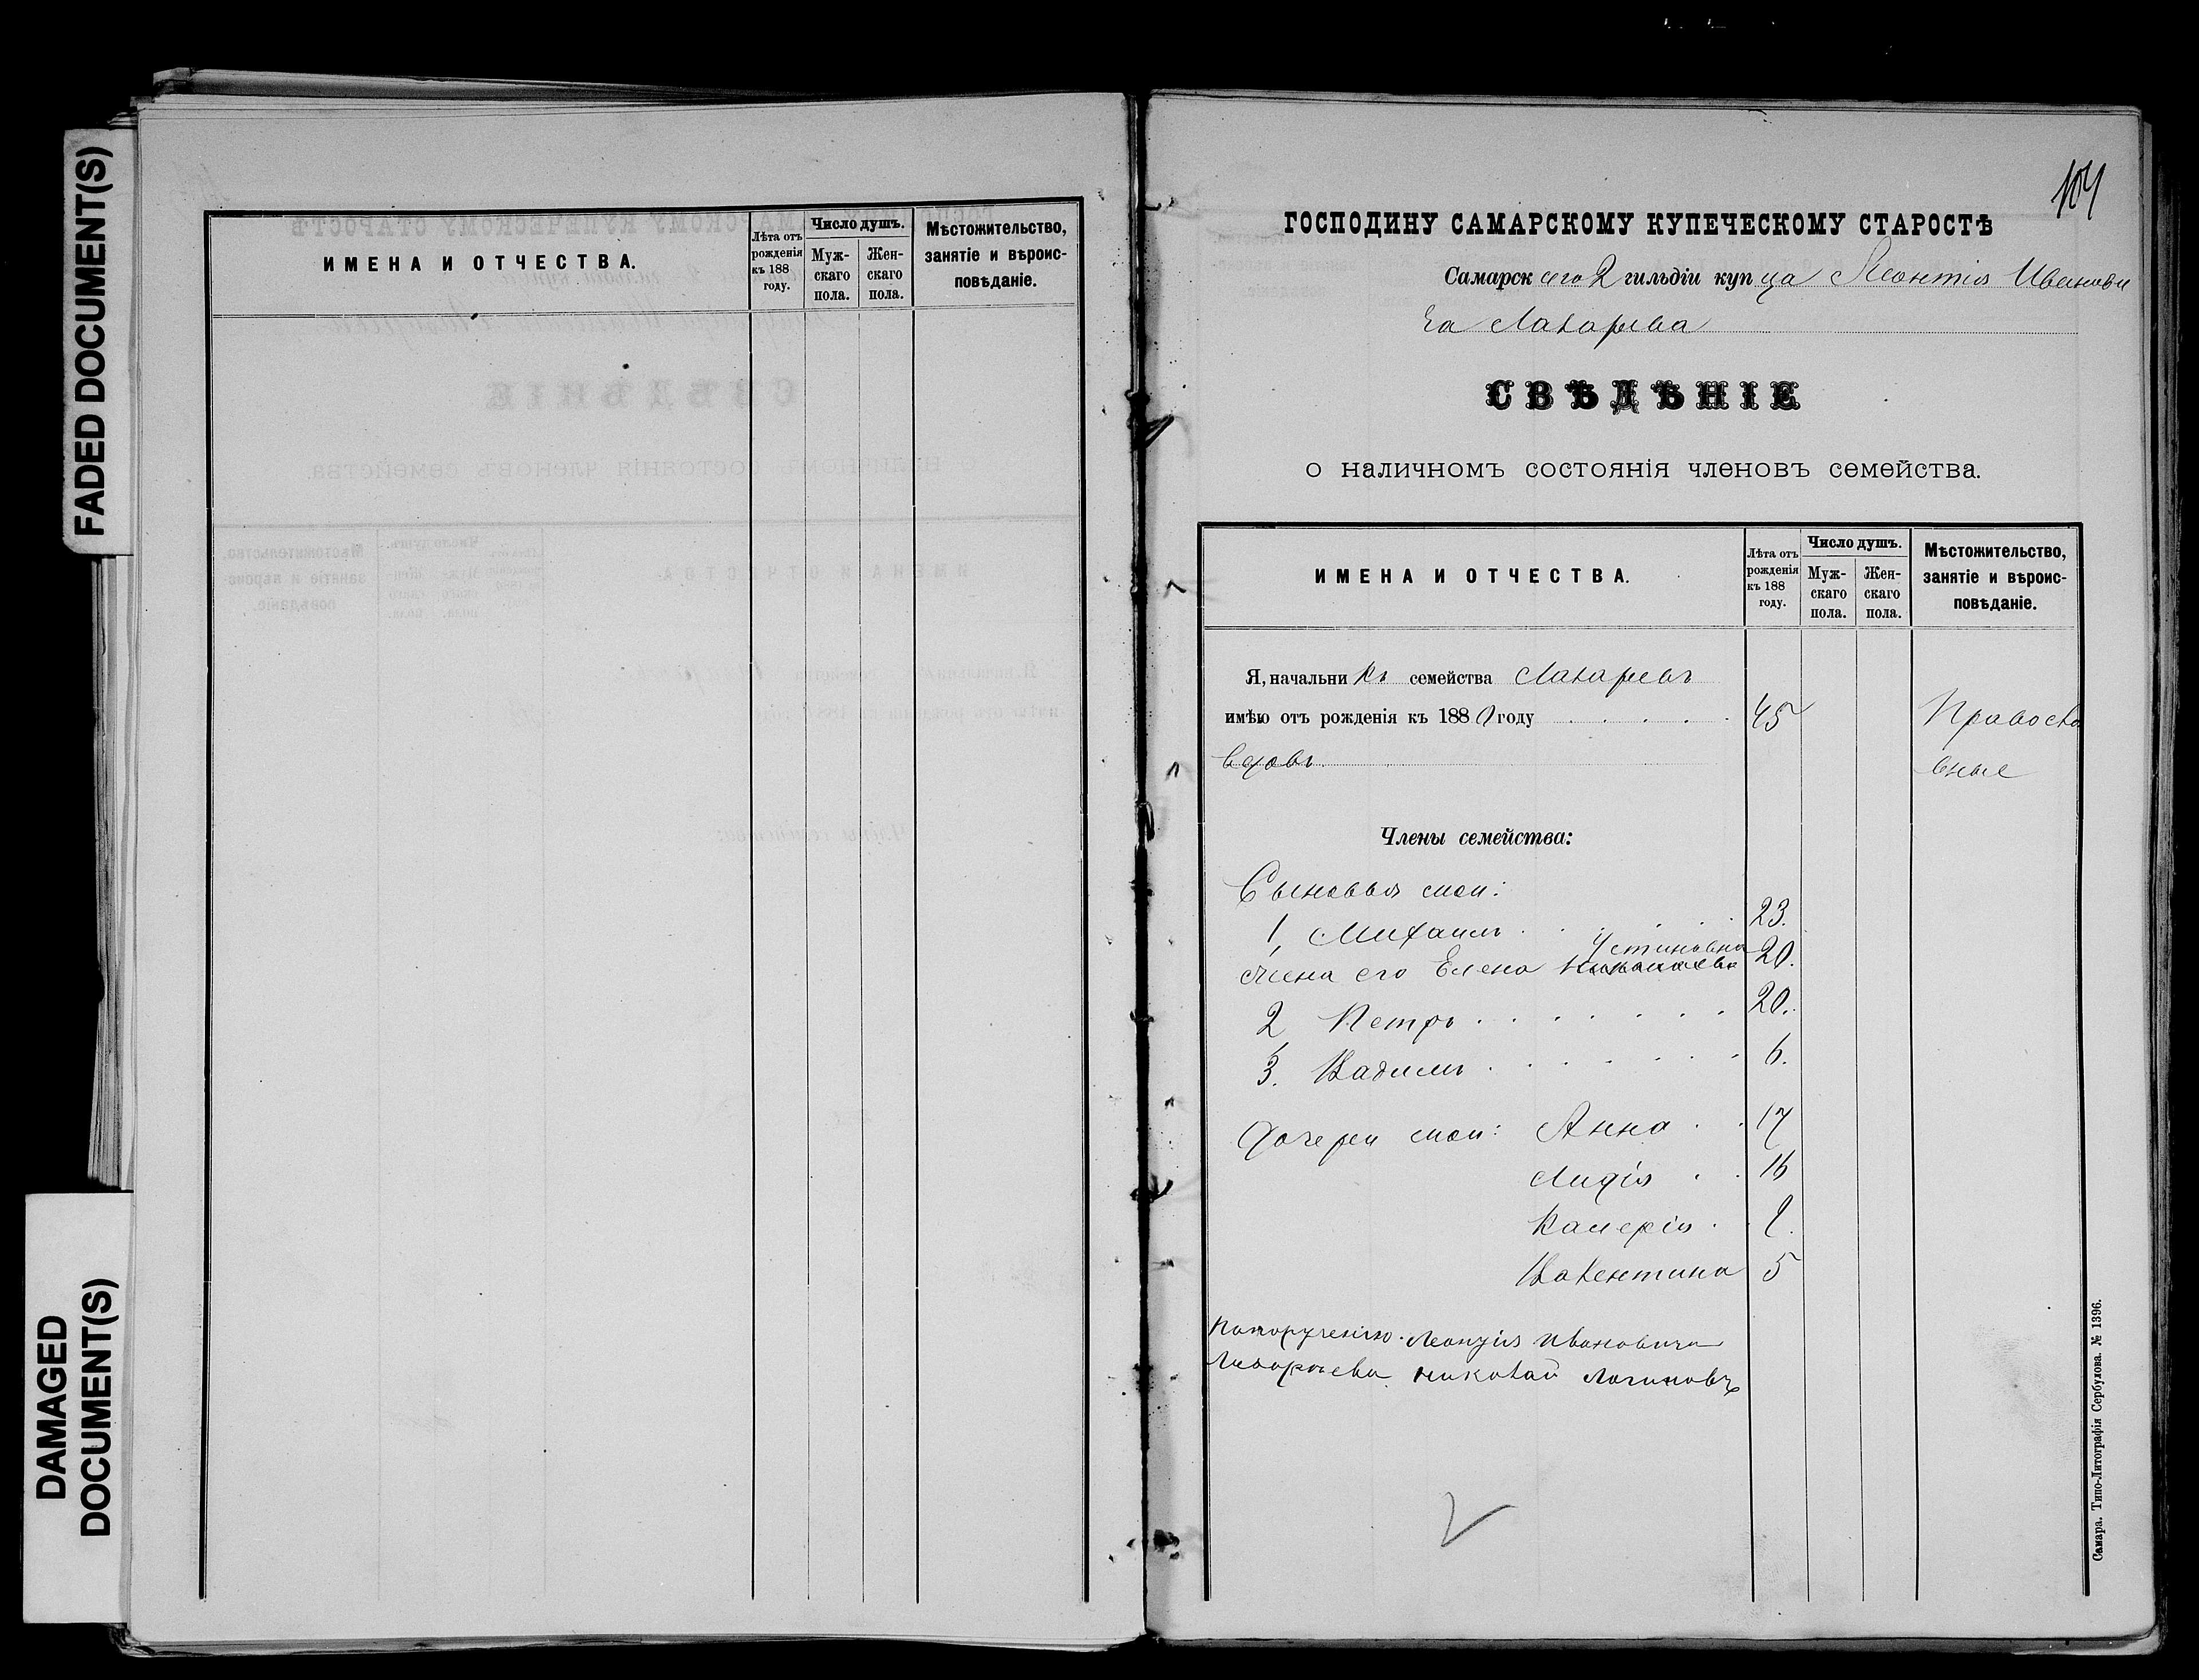 FADED DOCUMENT(S)
DAMAGED
DOCUMENT(S)
ИМЕНА И ОТЧЕСТВА.
Лѣта отъ
рожденія
къ 188
году.
Число душъ.
Муж-
скаго
пола.
Жен-
скаго
пола.
Мѣстожительство,
занятіе и вѣроис-
повѣданіе.
104
ГОСПОДИНУ САМАРСКОМУ КУПЕЧЕСКОМУ СТАРОСТѢ
Самарскаго 2 гильдіи купца Леонтія Иванови
ча Лазарева
СВѢДѢНІЕ
о наличномъ состоянія членовъ семейства.
ИМЕНА И ОТЧЕСТВА.
Лѣта отъ
рожденія
къ 188
году.
Число душъ.
Муж-
скаго
пола.
Жен-
скаго
пола.
Мѣстожительство,
занятіе и вѣроис-
повѣданіе.
Я, начальникъ семейства Лазаревъ
имѣю отъ рожденія къ 188 году . . . . . 45 Правосла
вдовъ вные
Члены семейства:
Сыновья мои:
1, Михаилъ . . . . 23.
Устиновна
жена его Елена 20.
2, Петръ . . . . . . . 20.
3. Вадимъ . . . . . . . 6.
Дочери мои: Анна . . 17
Лидія . . 16
Валерія . .
Валентина 5
Иванович
Николай Логиновъ
Самара. Типо-Литографія Сербулова. № 1396.